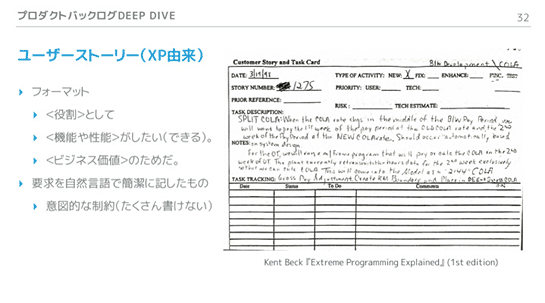 プロダクトバックログDEEP DIVE
32
ユーザーストーリー（XP由来）
フォーマット
<役割>として
<機能や性能>がしたい（できる）。
<ビジネス価値>のためだ。
要求を自然言語で簡潔に記したもの
意図的な制約（たくさん書けない）
Customer Story and Task Card
DATE: 3/19/98 TYPE OF ACTIVITY: NEW: X FIX: ENHANCE: FUNC. TEST
STORY NUMBER: 1275 PRIORITY: USER: TECH:
PRIOR REFERENCE: RISK: TECH ESTIMATE:
TASK DESCRIPTION:
SPLIT COLA: When the COLA rate chgs in the middle of the BIW Pay Period, we
will want to pay the 1st week of the pay period at the OLD COLA rate and the 2nd
week of the Pay Period at the NEW COLA rate. Should occur automatically based
NOTES: on system design
For the OT, we will run a m/frame program that will pay or calc the COLA on the 2nd
week of OT. The plant currently retransmits the hours data for the 2nd week exclusively
so that we can calc COLA. This will come into the Model as a "2144" COLA
TASK TRACKING: Gross Pay Adjustment. Create RM Boundary and Place in DEEnt Excess COLA
Date Status To Do Comments
Kent Beck『Extreme Programming Explained』(1st edition)